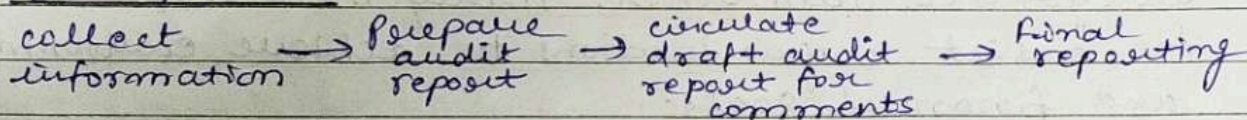 collect information → Prepare audit report → circulate draft audit report for comments → Final reporting